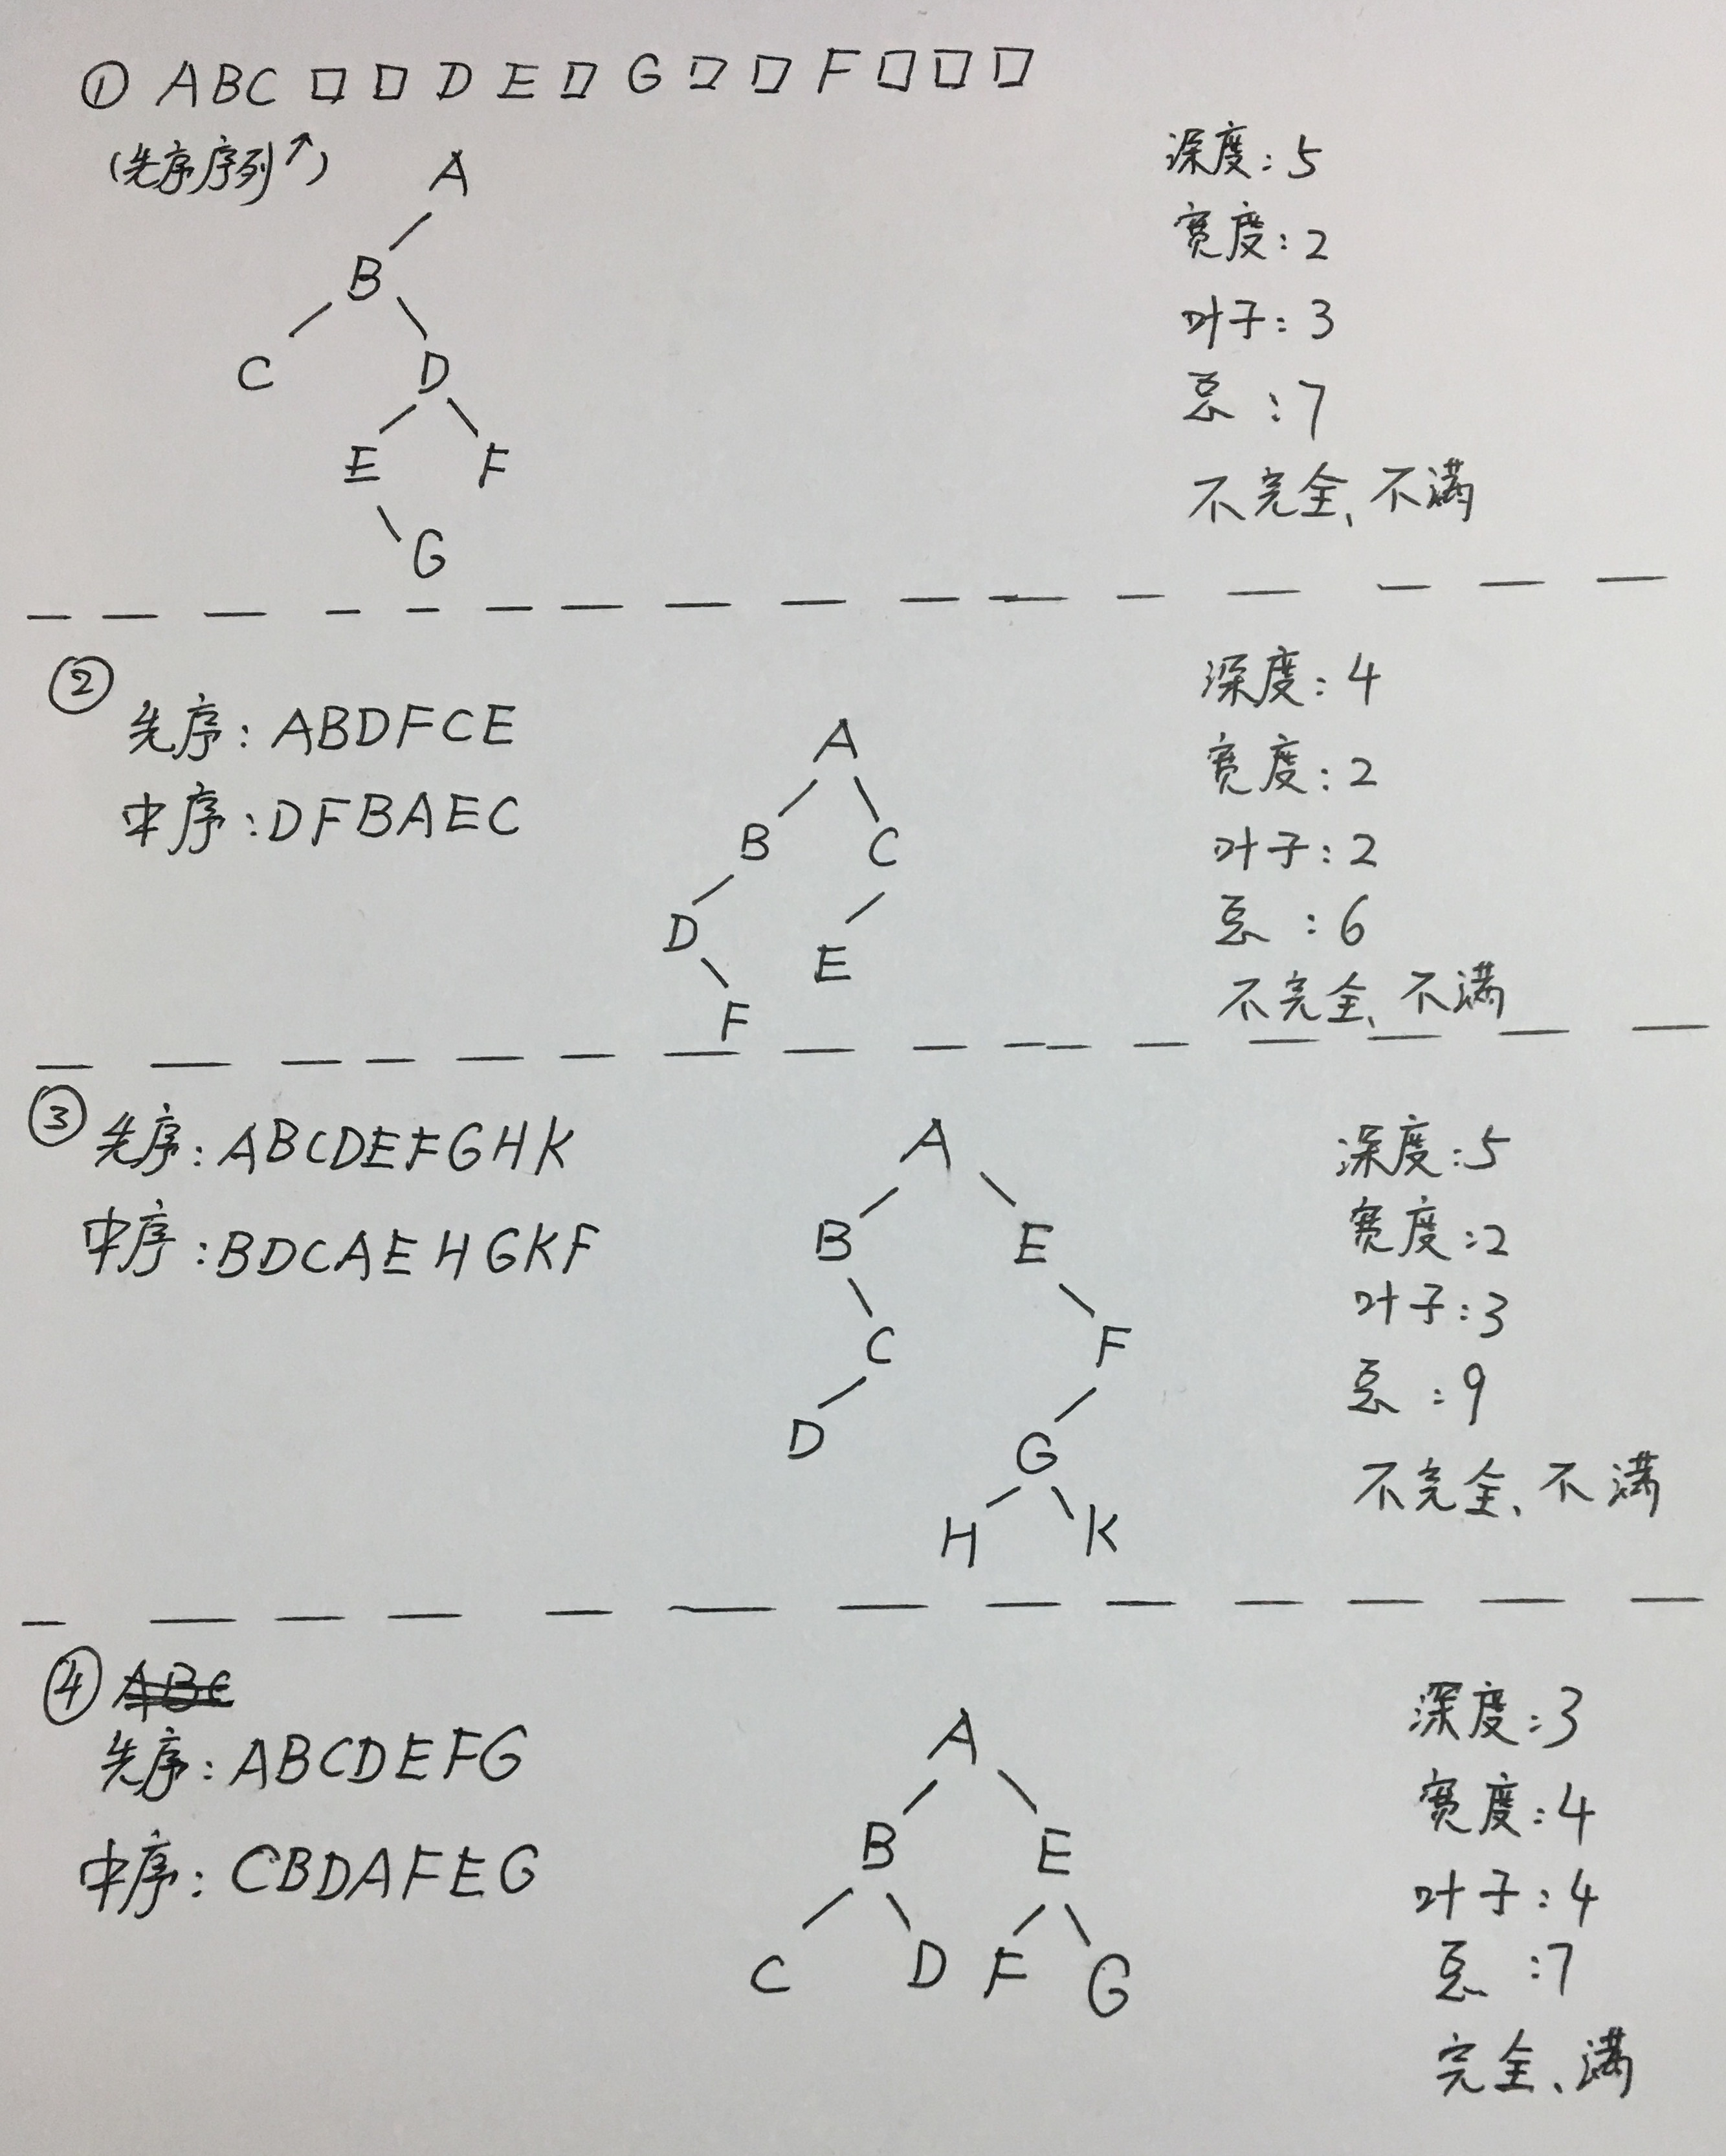 ① ABC □ □ D E □ G □ □ F □ □ □
(先序序列↑)
A
B
C D
E F
G
深度: 5
宽度: 2
叶子: 3
总 : 7
不完全、不满
②
先序: ABDFCE
中序: DFBAEC
A
B C
D E
F
深度: 4
宽度: 2
叶子: 2
总 : 6
不完全、不满
③ 先序: ABCDEFGHK
中序: BDCAEHGKF
A
B E
C F
D G
H K
深度: 5
宽度: 2
叶子: 3
总 : 9
不完全、不满
④ ABC
先序: ABCDEFG
中序: CBDAFEG
A
B E
C D F G
深度: 3
宽度: 4
叶子: 4
总 : 7
完全、满